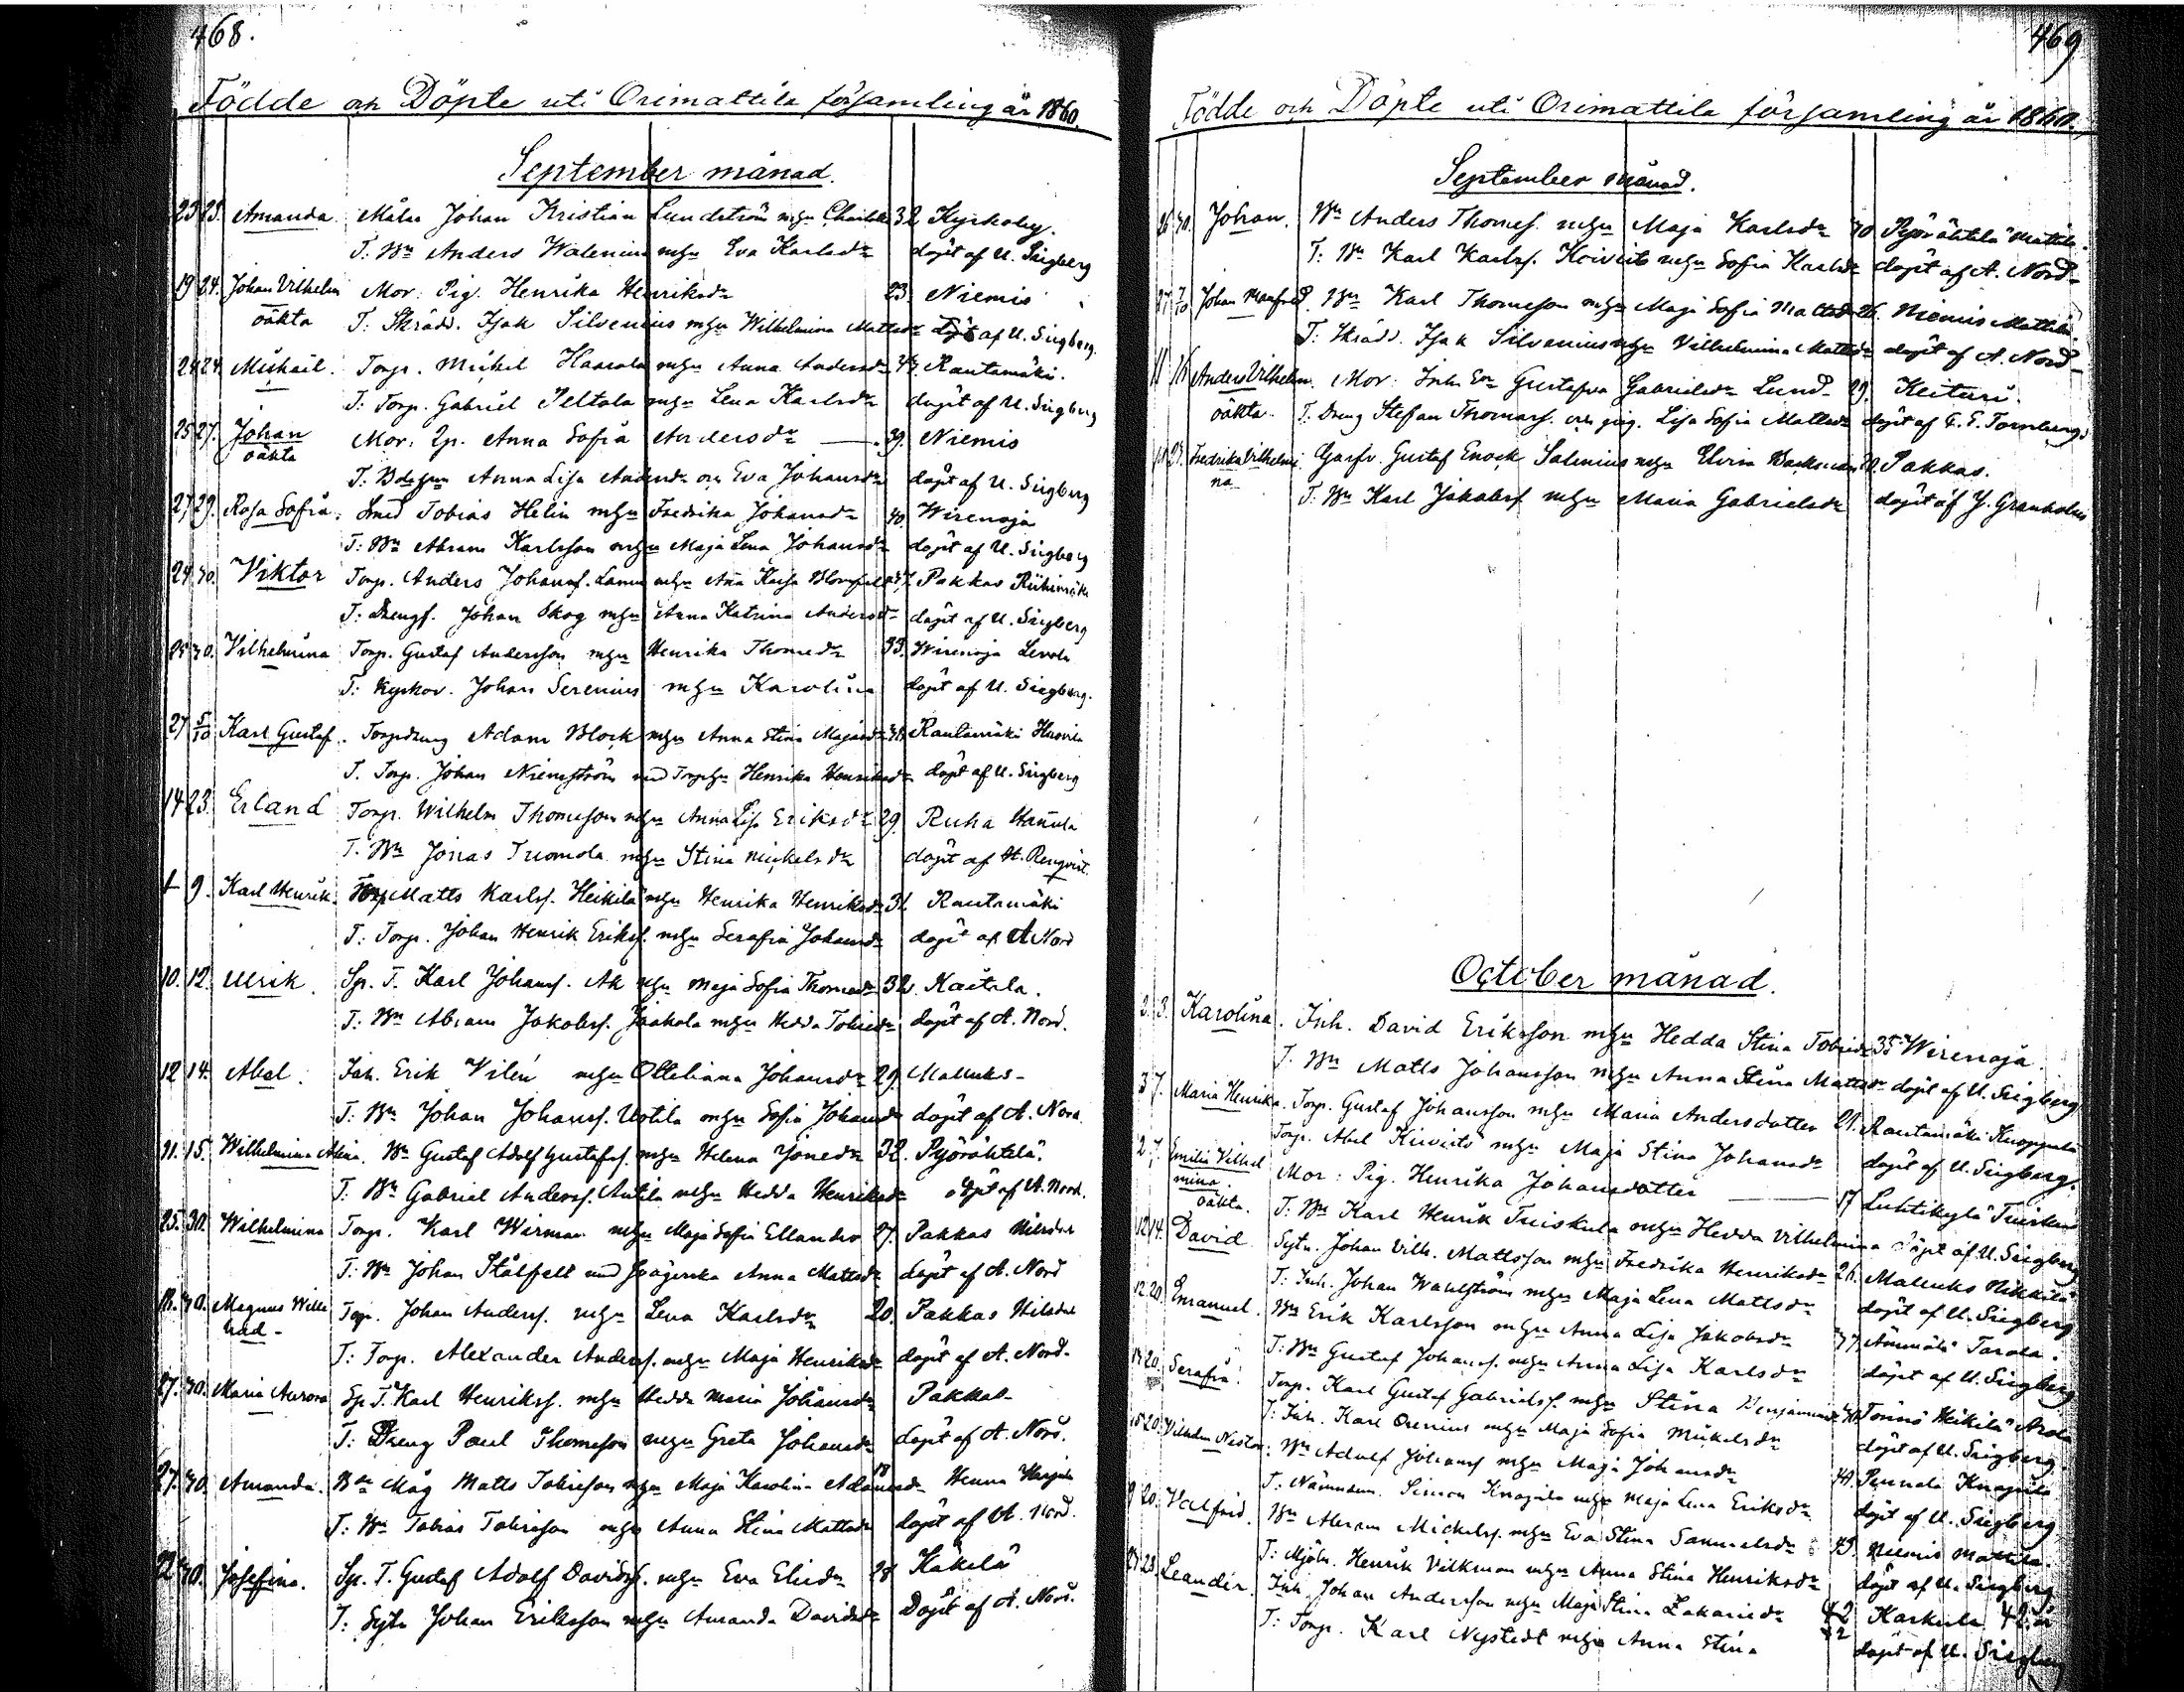 468.
Födde och Döpte uti Orimattila församling år 1860.
September månad.
23 23. Amanda. Målar Johan Kristian Lundström mhu 32 Kyrkoby.
T. Bn Anders Walenius mhu Eva Karlsdr döpt af U. Siegberg
19 24. Johan Vilhelm Mor: Pig. Henrika Henriksdr 23. Niemis
oäkta T: Skrädd. Isak Silvenius mhu Wilhelmina Mattsdr döpt af U. Siegberg.
24 24. Michail. Torp. Mickel Haarala mhu Anna Andersdr Rautamäki.
T: Torp. Gabriel Peltola mhu Lena Karlsdr döpt af U. Siegberg
25 27. Johan Mor: Anna Sofia Andersdr 39. Niemis
oäkta
T: Anna Lisa Andersdr och Eva Johansdr döpt af U. Siegberg
27 29. Rosa Sofia. Smed Tobias Helin mhu Fredrika Johansdr 40. Wirenoja
T: Bn Abram Karlsson mhu Maja Lena Johansdr döpt af U. Siegberg
24 30. Viktor Torp. Anders Johanss. mhu Anna Kaisa Pakkas Riihimäki
T: Drengf. Johan Skog mhu Anna Katrina Andersdr döpt af U. Siegberg
25 30. Vilhelmina Torp. Gustaf Andersson mhu Henrika Thomedr 33. Wirenoja Levola
T: Kyrkov. Johan Serenius mhu Karolina döpt af U. Siegberg.
27 5/10 Karl Gustaf. Torpdreng Adam Block mhu Anna Stina Rautamäki
T. Torp. Johan Niemström med Henrika Henriksdr döpt af U. Siegberg
14 23. Erland Torp. Wilhelm Thomesson mhu Anna Lisa Eriksdr 29. Ruha Hannula
T. Bn Jonas Tuomola mhu Stina Mickelsdr döpt af H. Renqvist.
9. Karl Henrik. Torp Matts Karlss. Heikilä mhu Henrika Henriksdr 31. Rautamäki
T: Torp. Johan Henrik Erikss. mhu Serafia Johansdr döpt af A Nord
10. 12. Ulrik. Sp. T. Karl Johanss. Ak mhu Maja Sofia Thomasdr 32. Kaitala.
T: Bn Abram Jakobss. Jaakola mhu Hedda döpt af A. Nord.
12 14. Abel. Inh. Erik Vilén mhu Ottiliana Johansdr 29. Mallusks-
T: Bn Johan Johanss. Uotila mhu Sofia Johansdr döpt af A. Nord.
11. 15. Wilhelmina Alina. Bn Gustaf Adolf Gustafss. mhu Helena Jonedr 32. Pyörähtelä.
T: Bn Gabriel Anderss. Antila mhu Hedda Henriksdr döpt af A. Nord.
25. 30. Wilhelmina Torp. Karl Wirman mhu Maja Sofia Ellandr 27. Pakkas
T: Bn Johan Stålfelt med Anna Mattsdr döpt af A. Nord
18. 30. Magnus Wille Torp. Johan Anderss. mhu Lena Karlsdr 20. Pakkas
had-
T: Torp. Alexander Anderss. mhu Maja Henriksdr döpt af A. Nord.
27. 30. Maria Aurora Sp. T. Karl Henrikss. mhu Hedda Maria Johansdr Pakkas
T: Dreng Paul Thomesson mhu Greta Johansdr döpt af A. Nord.
27. 30. Amanda. Bn Måg Matts Tobiesson mhu Maja Karolina Adamsdr Henna
T: Bn Tobias Tobiesson mhu Anna Stina Mattsdr döpt af A. Nord.
22 30. Josefina. Sp. T. Gustaf Adolf Davidss. mhu Eva Eliedr 28 Käkelä
T: Sytn Johan Eriksson mhu Amanda Davidsdr Döpt af A. Nord.
469
Födde och Döpte uti Orimattila församling år 1860.
September månad.
26 30. Johan. Bn Anders Thomess. mhu Maja Karlsdr 40 Pyörähtelä Mattila.
T: Bn Karl Karlss. Koivisto mhu Sofia Karlsdr döpt af A. Nord-
27 7/10 Johan Manfred. Bn Karl Thomesson mhu Maja Sofia Mattsdr 26. Niemis Mattila
T: Skrädd. Isak Silvenius mhu Vilhelmina Mattsdr döpt af A. Nord-
11 16 Anders Vilhelm. Mor: Inh. Enk. Gustafva Gabrielsdr Lund 29. Keituri.
oäkta. T. Dreng Stefan Thomass. och pig. Lisa Sofia Mattsdr döpt af
23. Fredrika Vilhelmi Garfv. Gustaf Enock Salenius mhu Elvira Backman Pakkas.
na
T. Bn Karl Jakobss mhu Maria Gabrielsdr döpt af J. Granholm
October månad.
3. 3. Karolina. Inh. David Eriksson mhu Hedda Stina Tobiedr 35 Wirenoja.
T. Bn Matts Johansson mhu Anna Stina Mattsdr döpt af U. Siegberg
3 7. Maria Henrika. Torp. Gustaf Johansson mhu Maria Andersdotter 21. Rautamäki Knoppula
Torp. Abel Kivistö mhu Maja Stina Johansdr döpt af U. Siegberg.
2 7. Emilia Vilhel Mor: Pig. Henrika Johansdotter 17 Luhtikylä Tuiskula
mina.
oäkta. T: Bn Karl Henrik Tuiskula mhu Hedda Vilhelmina döpt af U. Siegberg
12 14. David. Sytn. Johan Vilh. Mattsson mhu Fredrika Henriksdr 26. Mallusks Nikkilä
T: Inh. Johan Wahlström mhu Maja Lena Mattsdr döpt af U. Siegberg
12. 20. Emanuel. Bn Erik Karlsson mhu Anna Lisa Jakobsdr 37. Ämmälä Tarola.
T: Bn Gustaf Johanss. mhu Anna Lisa Karlsdr döpt af U. Siegberg
14 20. Serafia. Torp. Karl Gustaf Gabrielss. mhu Stina Benjaminsdr Tönnö Heikilä Arola
T: Inh. Karl mhu Maja Sofia Mickelsdr döpt af U. Siegberg.
15 20. Vilhelm Nestor. Bn Adolf Johanss mhu Maja Johansdr Pennala Knapila
T: Nämndem. Simon Knapila mhu Maja Lena Eriksdr döpt af U. Siegberg
9 20. Valfrid. Bn Abram Mickelss. mhu Eva Stina Samuelsdr 43. Niemis Mattila.
T: Mjöln. Henrik Vilkman mhu Anna Stina Henriksdr döpt af U. Siegberg
23. Leander. Inh. Johan Andersson mhu Maja Stina Zakariedr 42 Karkula 42 år
T: Torp. Karl Nystedt mhu Anna Stina döpt af U. Siegberg